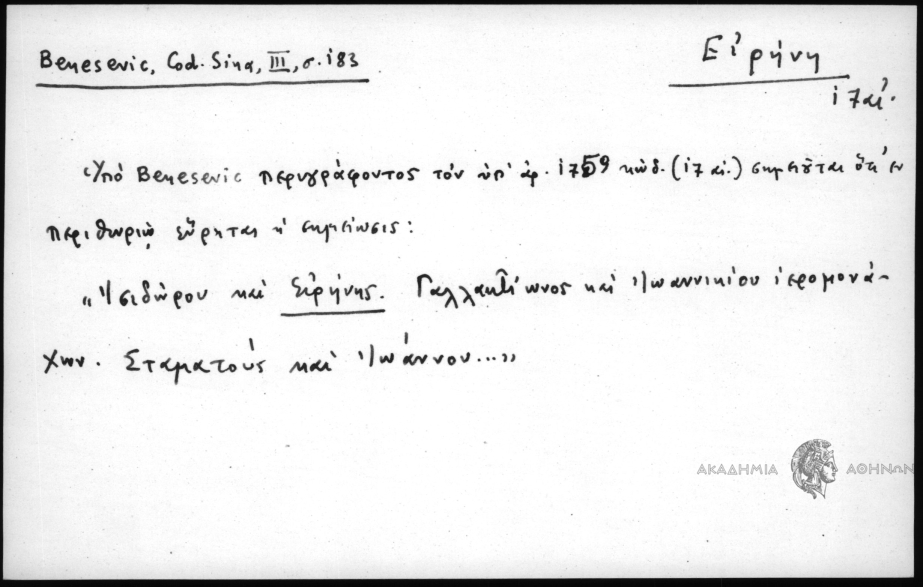 Benesevic, Cod. Sina, III, σ. 183
Εἰρήνη
17 αἰ.
Ὑπό Benesevic περιγράφοντος τόν ὑπ' ἀρ. 1759 κώδ. (17 αἰ.) σημειοῦται ὅτι ἐν
περιθωρίῳ εὕρηται ἡ σημείωσις:
„Ἰσιδώρου καί Εἰρήνης. Γαλλακτίωνος καί Ἰωαννικίου ἱερομονά-
χων. Σταματούς καί Ἰωάννου..."
ΑΚΑΔΗΜΙΑ ΑΘΗΝΩΝ